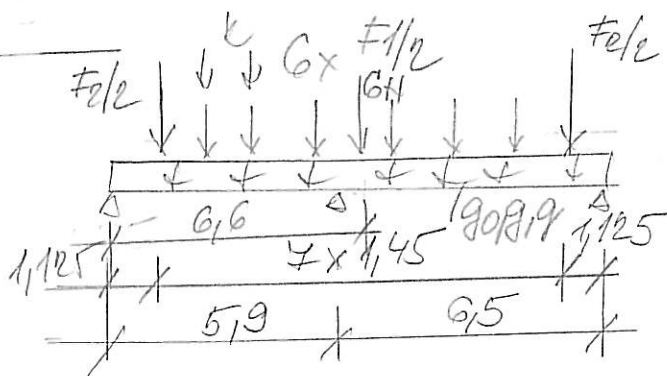 F2/2 6x F1/2 F2/2
6,6
1,125 7 x 1,45 1,125
5,9 6,5